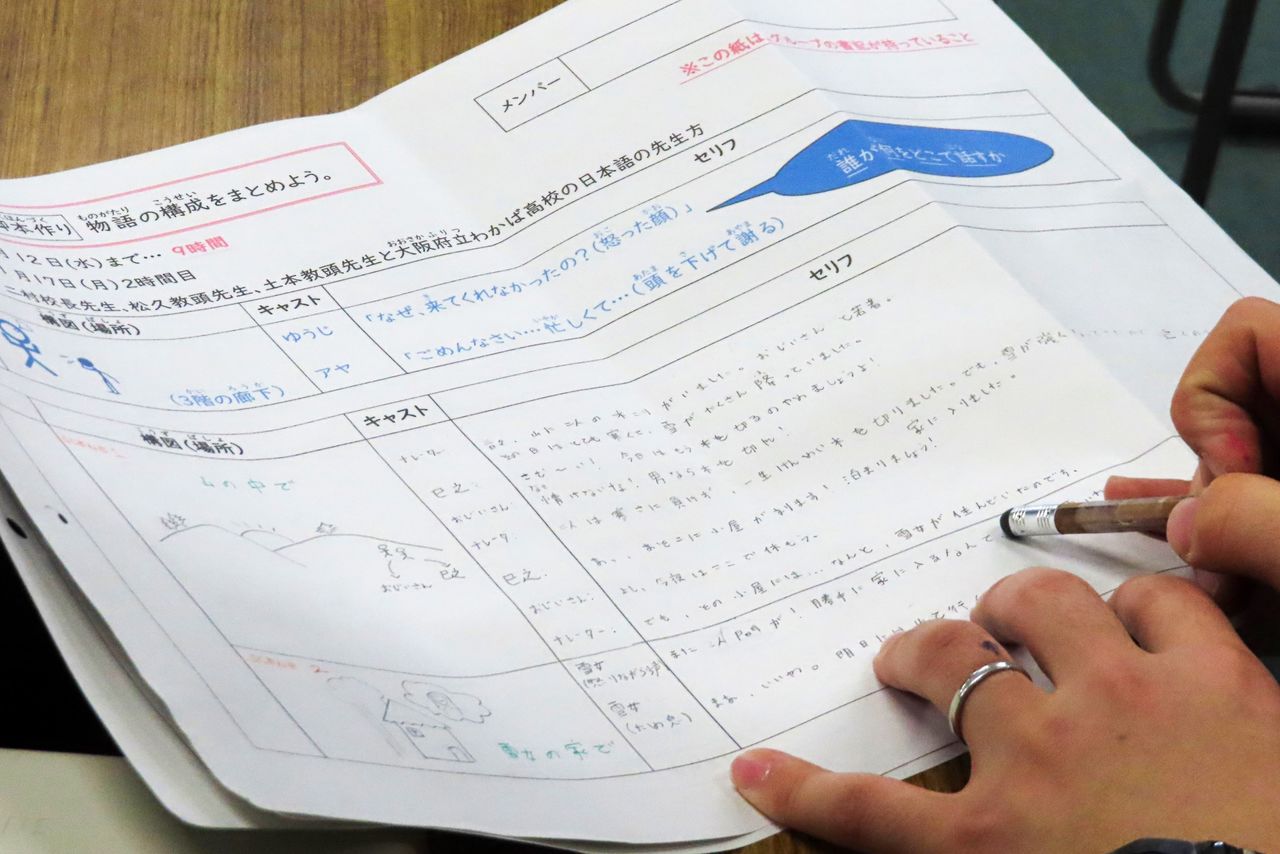 ※この紙は、グループの書記が持っていること
メンバー
脚本作り 物語の構成をまとめよう。
ものがたり こうせい
月12日(水)まで… 9時間
1月17日(月)2時間目
二村校長先生、松久教頭先生、土本教頭先生と大阪府立わかば高校の日本語の先生方
おおさかふりつ
構図(場所) キャスト セリフ
誰が何をとこで話すか
ゆうじ 「なぜ、来てくれなかったの?(怒った顔)」
アヤ 「ごめんなさい…忙しくて…(頭を下げて謝る)
(3階の廊下)
構図(場所) キャスト セリフ
山の中で
ナレーター 二人の木こりがいました。おじいさんと若者。
その日はとても寒くて、雪がたくさん降っていました。
巳之 さむ〜い!今日はもう木を切るのやめましょうよ!
おじいさん 情けないな!男なら木を切れ!
ナレーター 二人は寒さに負けず、一生けんめい木を切りました。でも、雪が強く
家に入りました。
巳之 あっ、あそこに小屋があります!泊まりましょう!
おじいさん よし、今夜はここで休もう。
ナレーター でも、その小屋には…なんと、雪女が住んでいたのです。
おじいさん 巳之
雪女 また人間が!勝手に家に入るなんて
雪女 (ため息) まあ、いいや。明日
雪女の家で